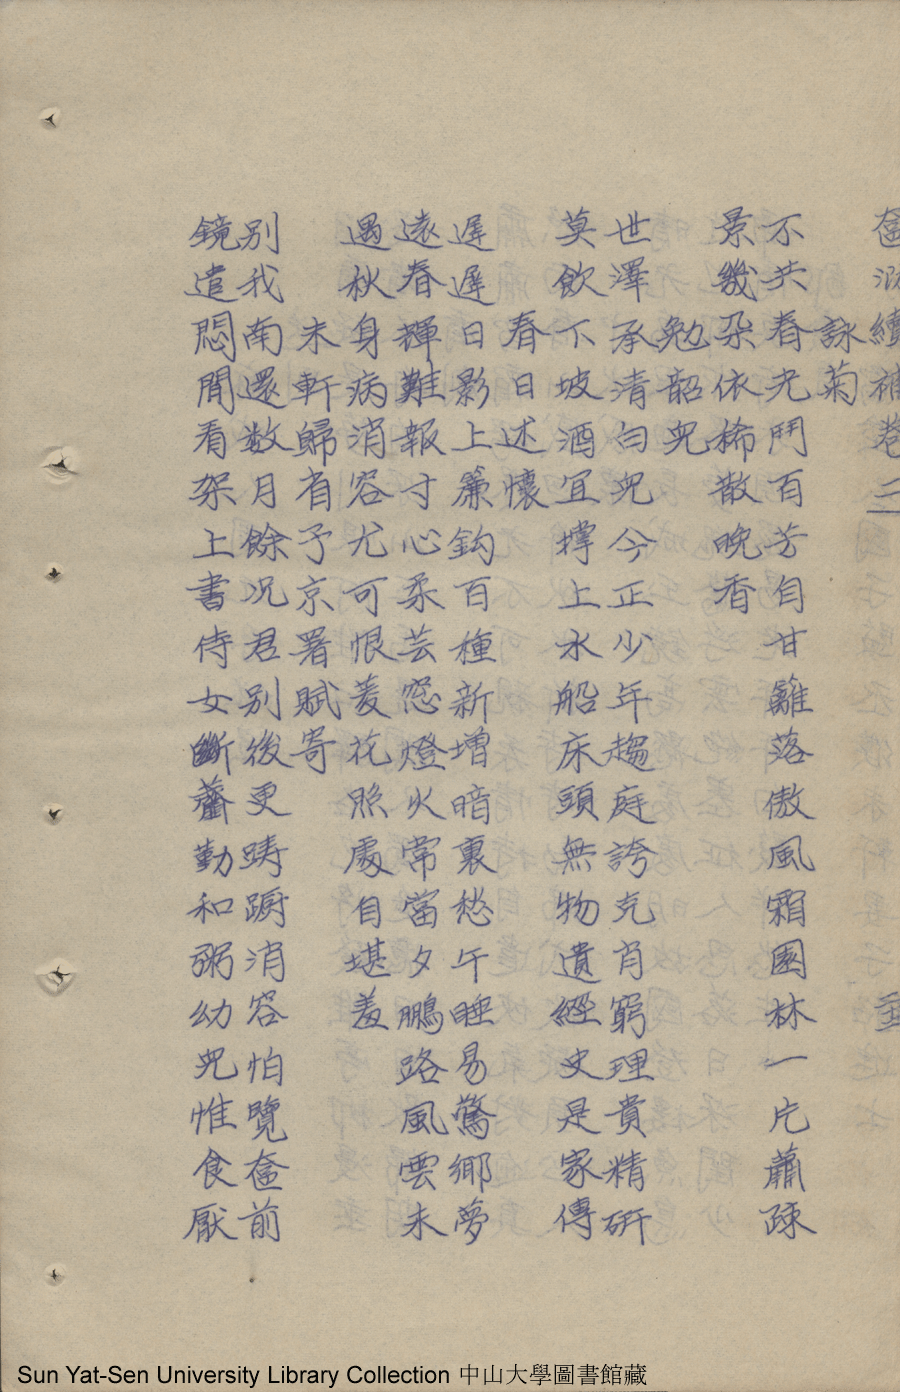 奩㴑續補卷三
詠菊
不共春光鬥百芳自甘籬落傲風霜園林一片蕭疎
景幾朶依稀散晚香
勉韶兒
世澤承清白兒今正少年趨庭誇克肖窮理貴精研
莫飲下坡酒宜撐上水船床頭無物遺經史是家傳
春日述懷
遲遲日影上簾鈎百種新增暗裏愁午睡易驚鄉夢
遠春輝難報寸心柔芸窓燈火常當夕鵬路風雲未
遇秋身病消容尤可恨菱花照處自堪羞
未軒歸省予京署賦寄
別我南還数月餘况君別後更踌蹰消容怕覽奩前
鏡遣悶閒看架上書侍女斷虀勤和粥幼兒惟食厭
Sun Yat-Sen University Library Collection 中山大學圖書館藏